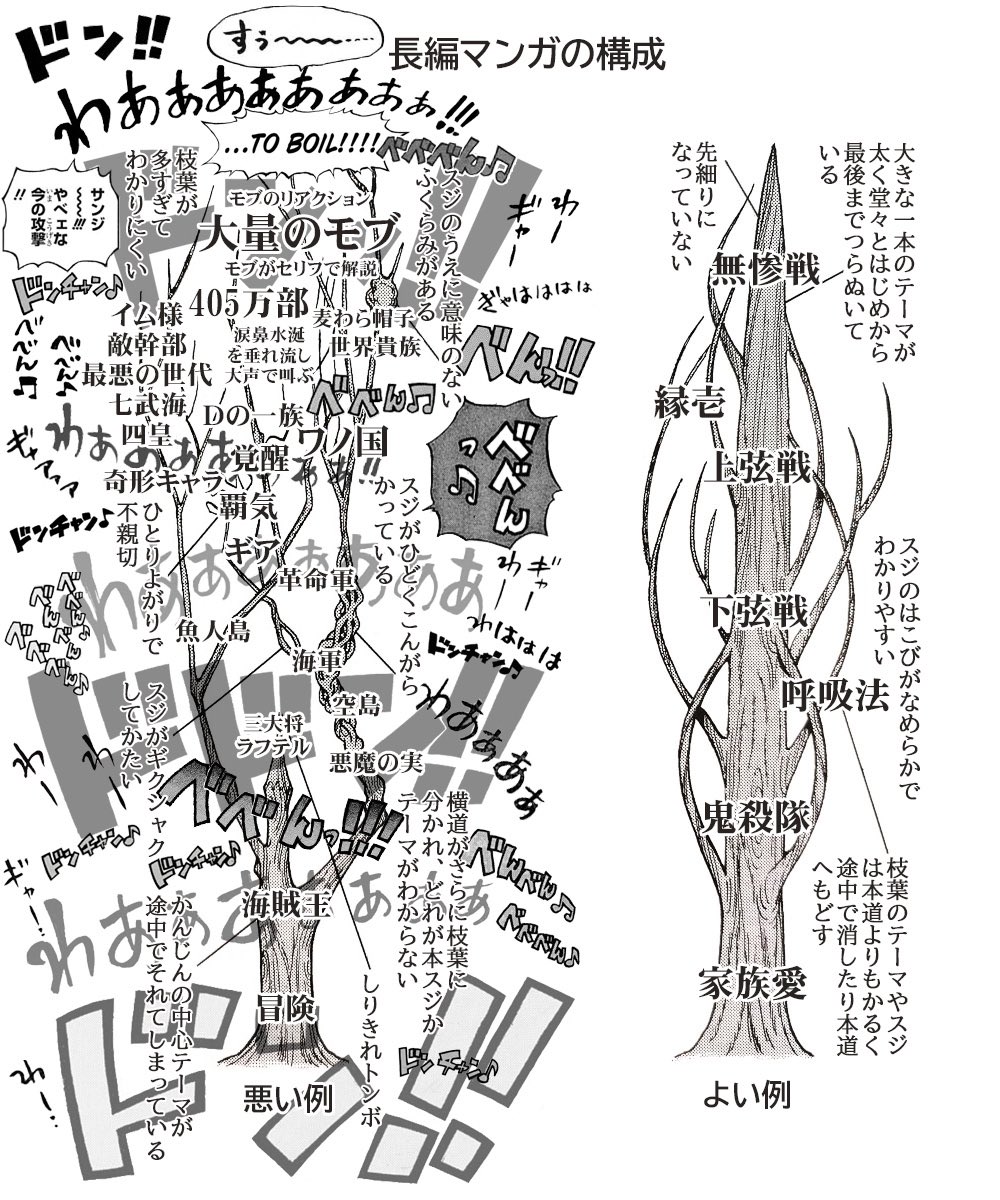 長編マンガの構成
ドン!!
すぅ〜〜〜〜……
わあぁぁぁぁぁぁぁぁ!!!
…TO BOIL!!!!
べべべん♫
ドン!!
サンジ
〜〜〜!!!
やべェな
今の攻撃
いま こうげき
!!
枝葉が
多すぎて
わかりにくい
スジのうえに意味のない
ふくらみがある
モブのリアクション
大量のモブ
モブがセリフで解説
405万部
涙鼻水涎
を垂れ流し
大声で叫ぶ
麦わら帽子
世界貴族
イム様
敵幹部
最悪の世代
七武海
四皇
奇形キャラ
Dの一族
覚醒
覇気
ギア
ワノ国
革命軍
魚人島
海軍
空島
三大将
ラフテル
悪魔の実
海賊王
冒険
ひとりよがりで
不親切
スジがひどくこんがら
かっている
スジがギクシャク
してかたい
横道がさらに枝葉に
分かれ、どれが本スジか
テーマがわからない
かんじんの中心テーマが
途中でそれてしまっている
しりきれトンボ
ドンチャン♪
べんべべ♫
んべべ!!
わ
ギャー
ぎゃはははは
べんっ!!
べべん♫
べべん
っ♫
わあぁぁぁぁぁぁ!!
ギャアァァ
ドンチャン♪
わあぁぁぁあぁぁ
わー
ギャー
わははは
ドンチャン♫
わあぁぁあぁ
ドドン!!
べべんっ!!!
わ
わ
ギャー…
ドンチャン♪
ドンチャン♪
べんべん♫
べべべん♫
わあぁぁあぁぁぁ
ドン!!
ドンチャン♫
わー…
悪い例
大きな一本のテーマが
太く堂々とはじめから
最後までつらぬいて
いる
先細りに
なっていない
無惨戦
縁壱
上弦戦
下弦戦
呼吸法
鬼殺隊
家族愛
スジのはこびがなめらかで
わかりやすい
枝葉のテーマやスジ
は本道よりもかるく
途中で消したり本道
へもどす
よい例